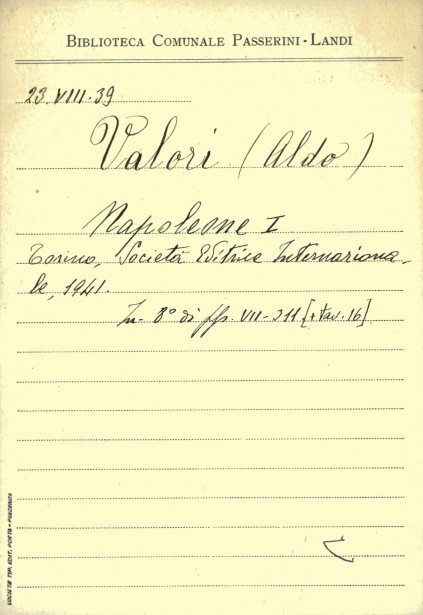 BIBLIOTECA COMUNALE PASSERINI-LANDI
23.VIII.39
Valori (Aldo)
Napoleone I
Torino, Società Editrice Internaziona-
le, 1941.
In-8° di pp. VII-211 [+ tav. 16]
SOCIETÀ TIP. EDIT. PORTA - PIACENZA